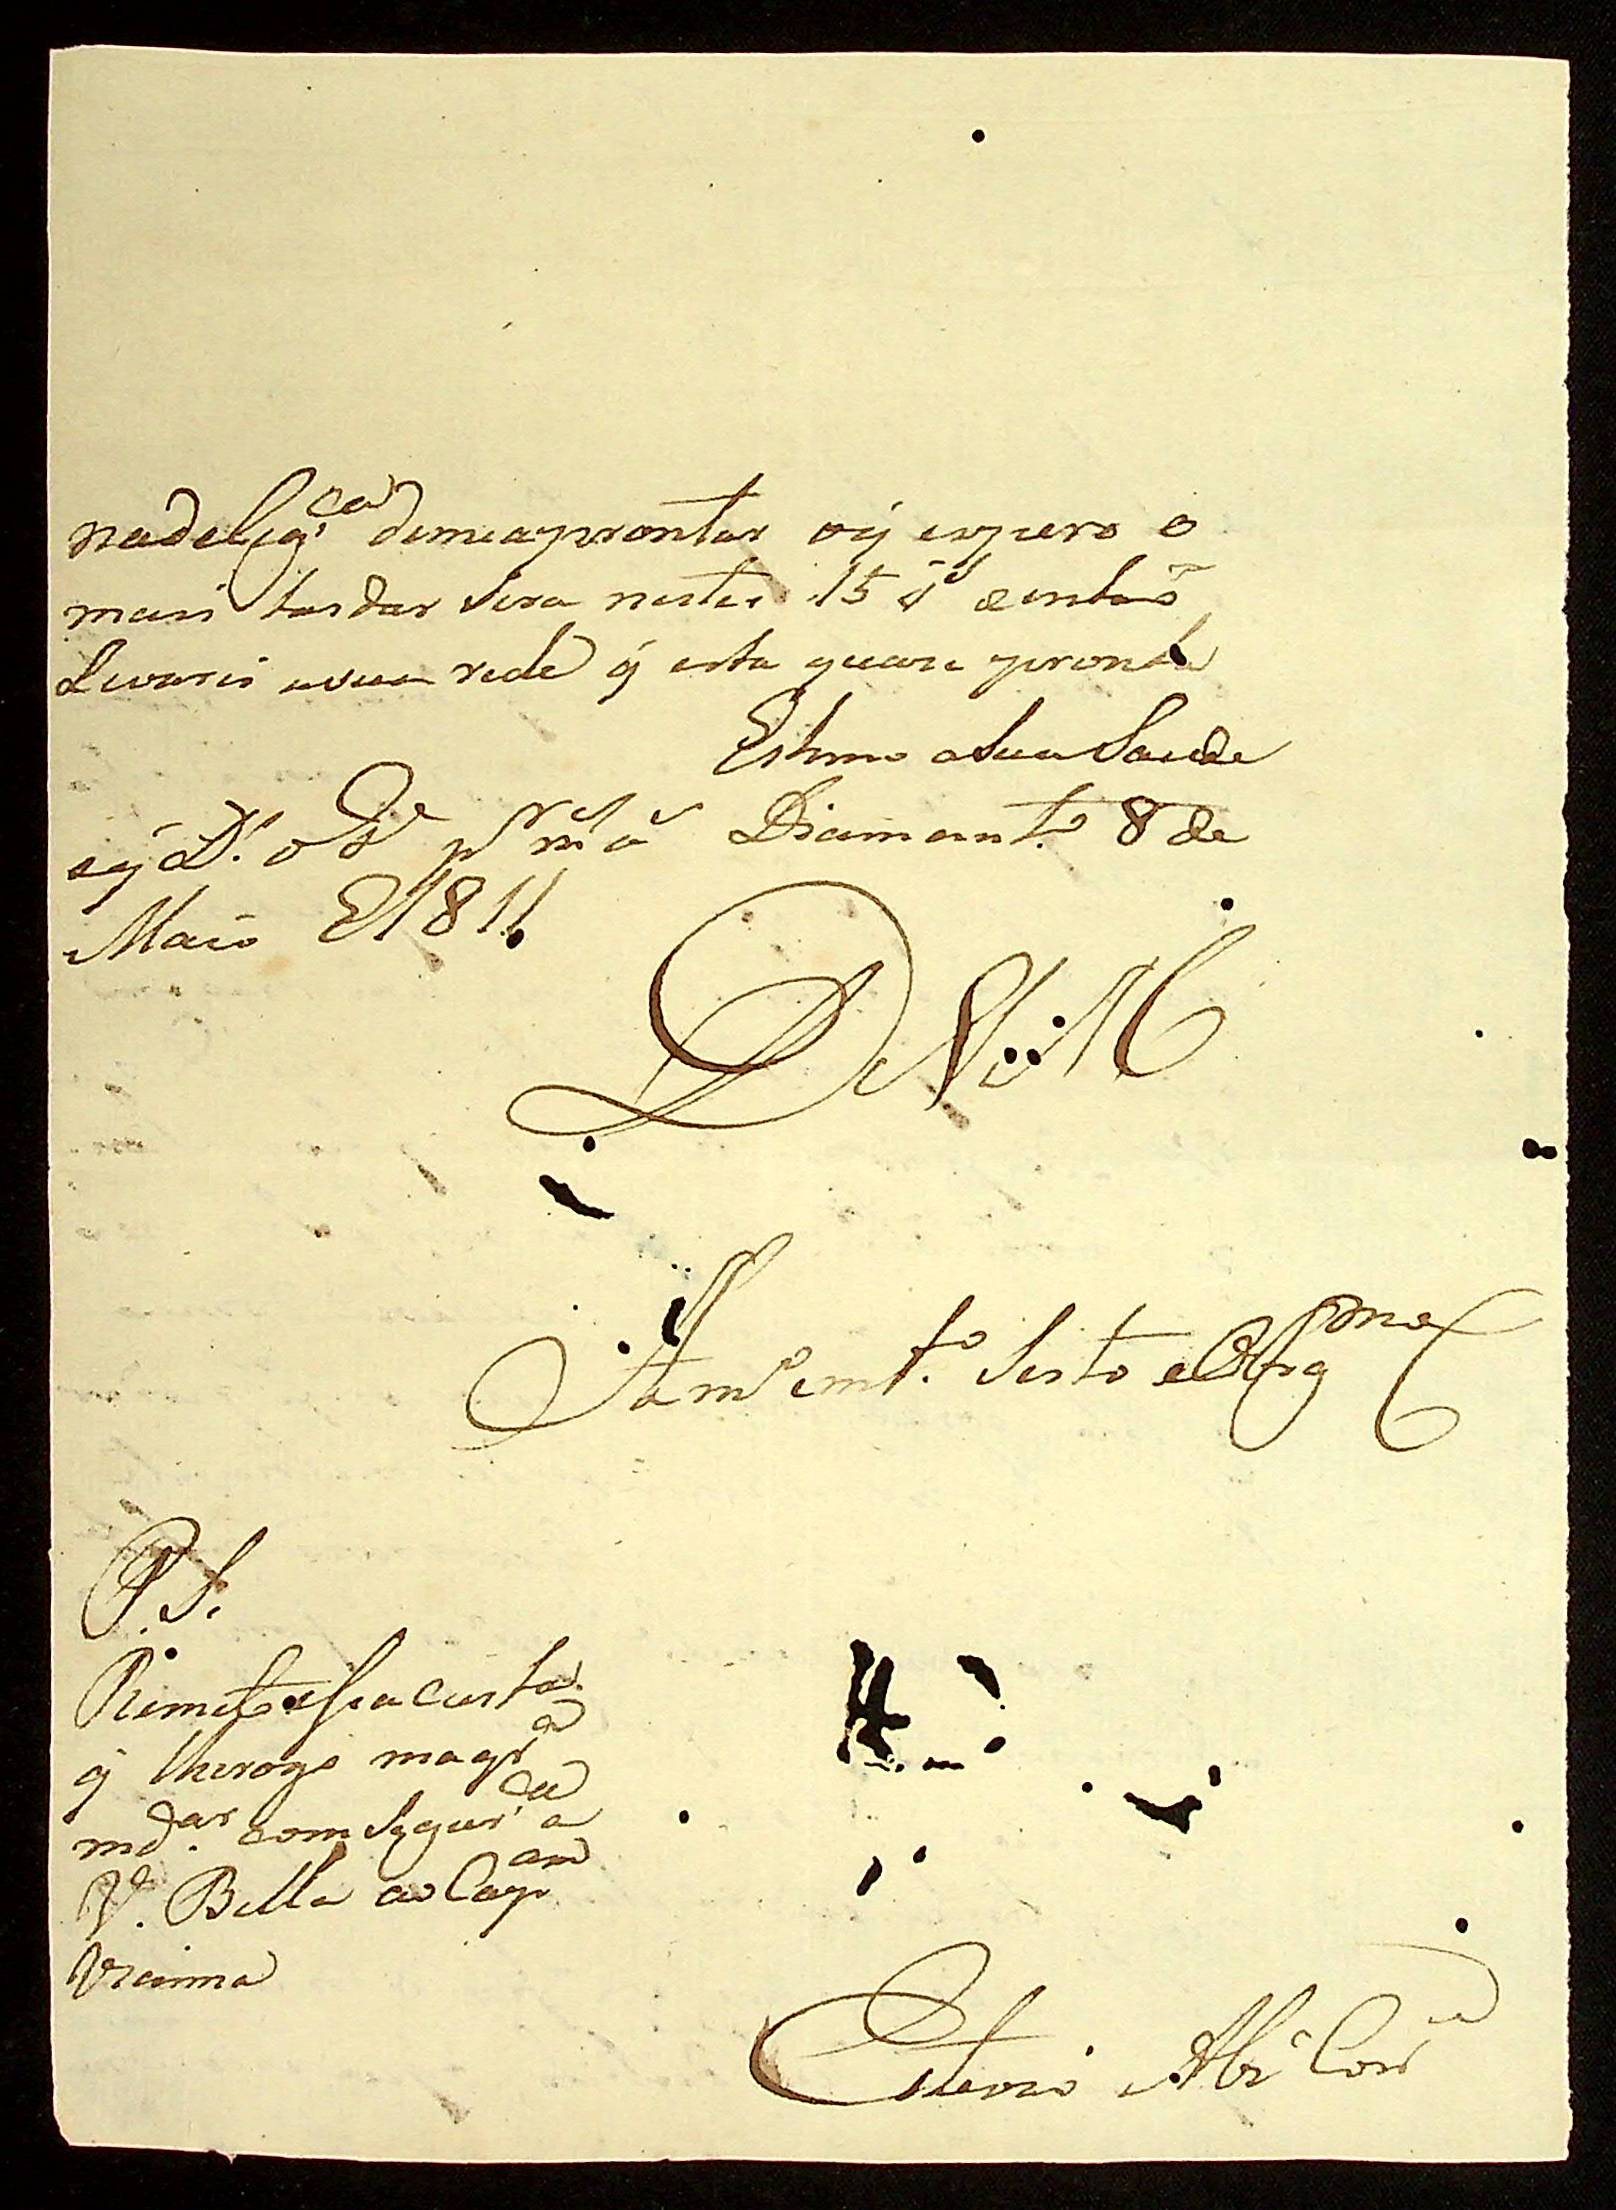 nadelig.ca demeaprontar oq̃ espero o
mais tardar Sera nestes 15 ds eentaõ
Levarei asua rede q̃ esta quazi pronta
Estimo aSua Saude
eq̃ Ds. o Gde pr ms as Diamant.o 8 de
Maio E1811
De VM
Am.o emt.o Serto eObrg.mo
P.S.
Remeto essa carta
q̃ lherogo mapr a
md.ar com Segur.ca a
V.a Bella ao Cap.am
Vianna
Estevaõ Alz Corr.a